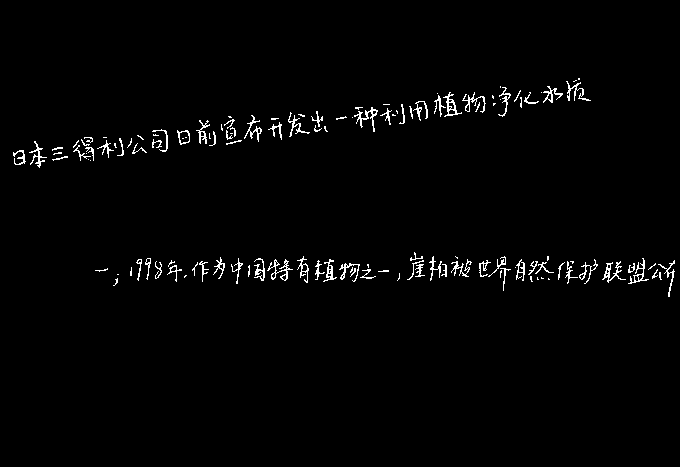 日本三得利公司日前宣布开发出一种利用植物净化水质
一；1998年.作为中国特有植物之一，崖柏被世界自然保护联盟公布